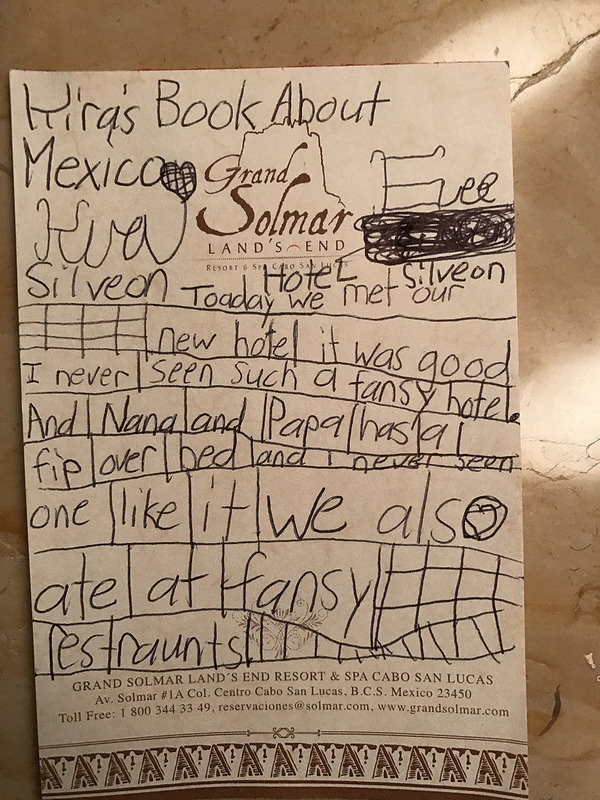 Kira's Book About
Mexico
Grand
Solmar
LAND'S END
RESORT & SPA CABO SAN LUCAS
Kira
Silveon
Evee
Silveon
HoteL
Toaday we met our
new hotel it was good
I never seen such a fansy hotel.
And Nana and Papa has a
fip over bed and i never seen
one like it we also
ate at fansy
restraunts.
GRAND SOLMAR LAND'S END RESORT & SPA CABO SAN LUCAS
Av. Solmar #1A Col. Centro Cabo San Lucas, B.C.S. Mexico 23450
Toll Free: 1 800 344 33 49, reservaciones@solmar.com, www.grandsolmar.com